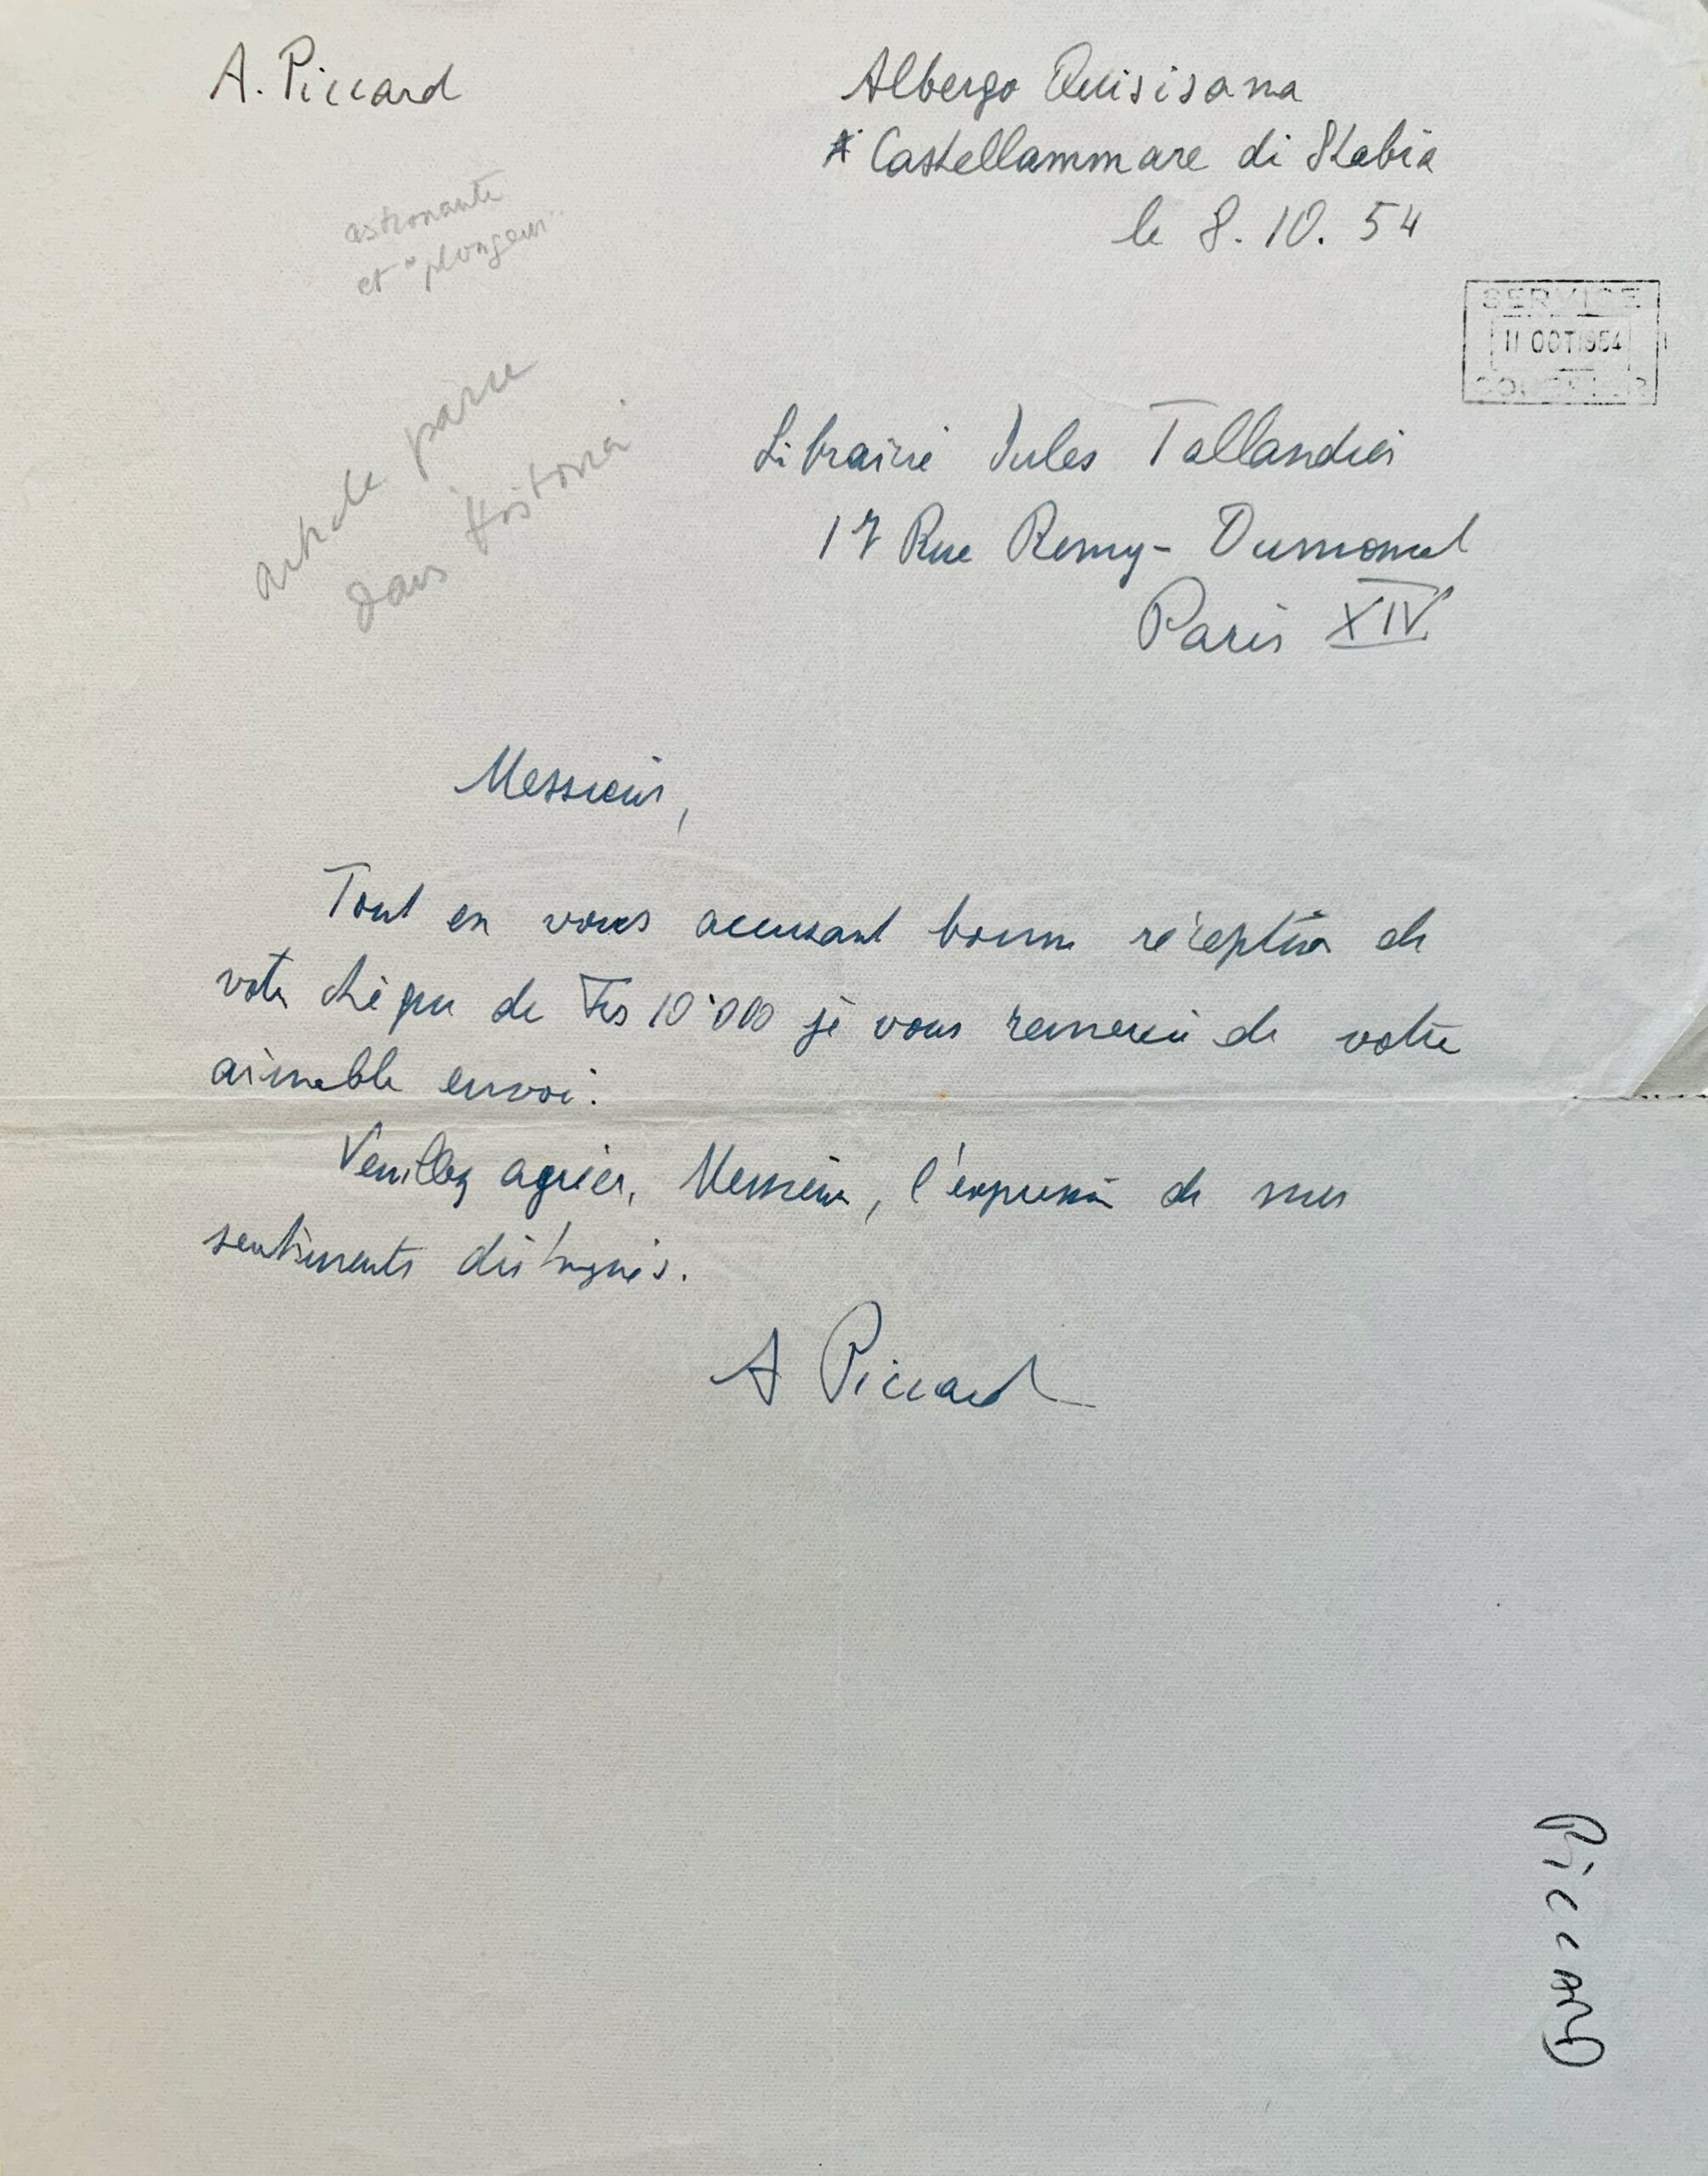 A. Piccard
Albergo Quisisana
Castellammare di Stabia
le 8. 10. 54
astronaute
et "plongeur"
SERVICE
11 OCT 1954
article paru
dans Historia
Librairie Jules Tallandier
17 Rue Remy-Dumoncel
Paris XIV
Messieurs,
Tout en vous accusant bonne réception de
votre chèque de Frs 10'000 je vous remercie de votre
aimable envoi.
Veuillez agréer, Messieurs, l'expression de mes
sentiments distingués.
A Piccard
PiccARD